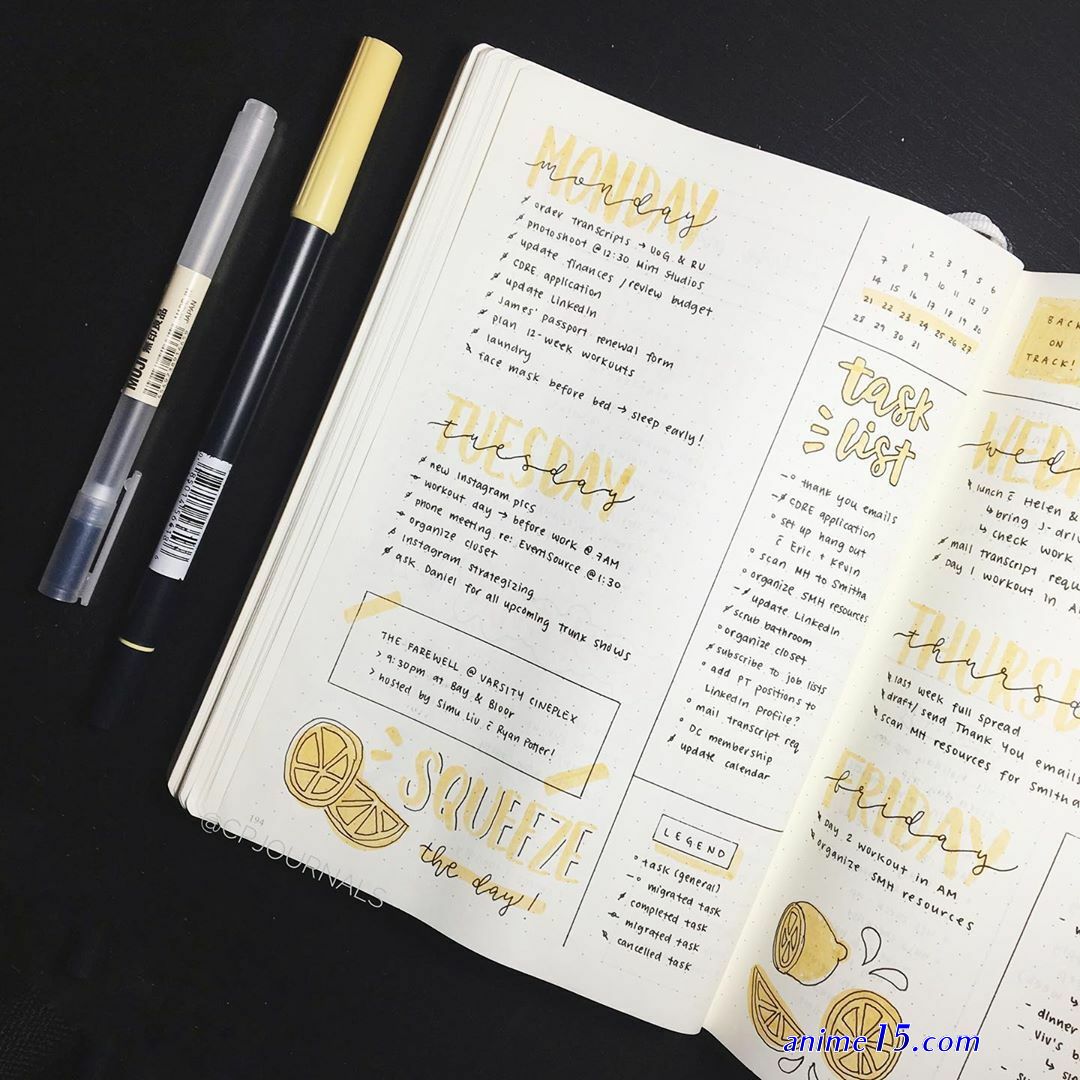 MUJI 無印良品
JAPAN
MONDAY
monday
order transcripts → UoG & RU
photoshoot @ 12:30 Mint Studios
update finances / review budget
CDRE application
update LinkedIn
James' passport renewal form
plan 12-week workouts
laundry
face mask before bed → sleep early!
TUESDAY
tuesday
new Instagram pics
workout day → before work @ 7AM
phone meeting re: EventSource @ 1:30
organize closet
Instagram strategizing
ask Daniel for all upcoming trunk shows
THE FAREWELL @ VARSITY CINEPLEX
> 9:30pm at Bay & Bloor
> hosted by Simu Liu c̄ Ryan Potter!
SQUEEZE
the day!
194
@CPJOURNALS
1 2 3 4 5 6
7 8 9 10 11 12 13
14 15 16 17 18 19 20
21 22 23 24 25 26 27
28 29 30 31
task
list
thank you emails
CDRE application
set up hang out
c̄ Eric + Kevin
scan MH to Smitha
organize SMH resources
update LinkedIn
scrub bathroom
organize closet
subscribe to job lists
add PT positions to
LinkedIn profile?
mail transcript req
DC membership
update calendar
LEGEND
task (general)
migrated task
completed task
migrated task
cancelled task
BACK
ON
TRACK!
WED
wed
lunch c̄ Helen &
↳ bring J-
↳ check work
mail transcript
Day 1 workout in
THURS
thurs
last week full spread
draft/send Thank You emails
scan MH resources for Smitha
FRIDAY
friday
Day 2 workout in AM
organize SMH resources
- dinner
- Viv's
anime15.com